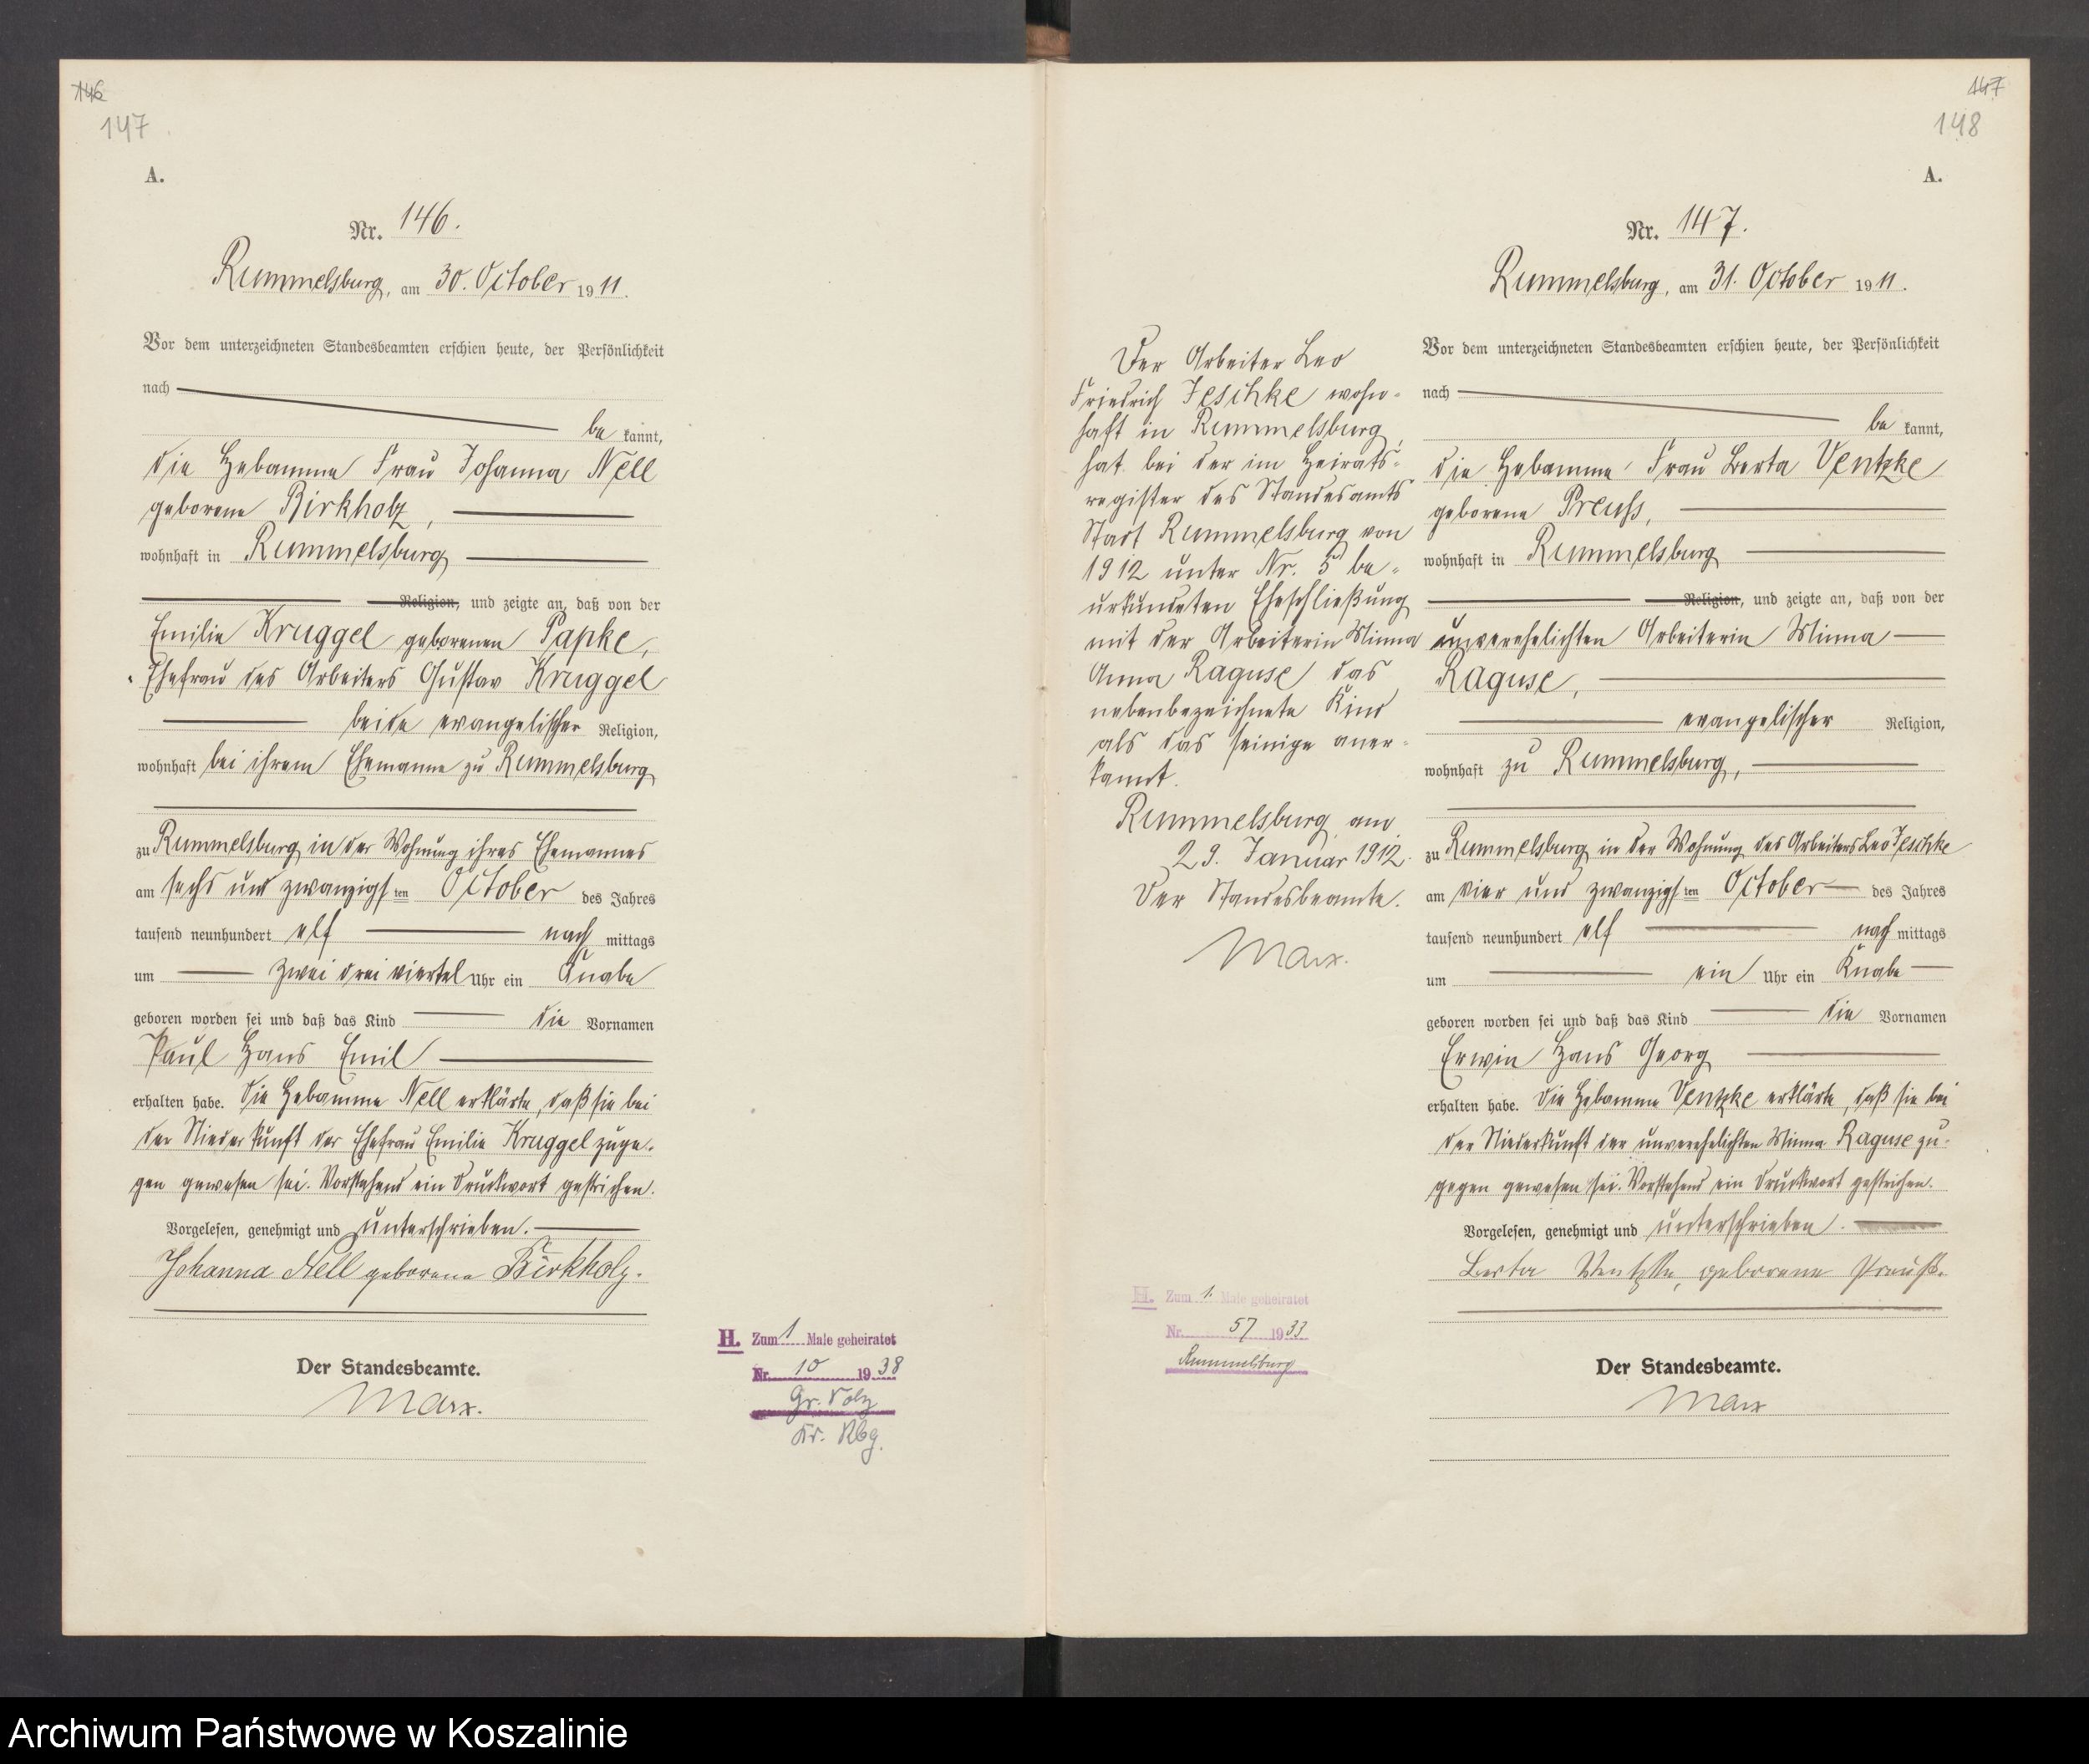 146
147
A.
Nr. 146.
Rummelsburg, am 30. October 1911.
Vor dem unterzeichneten Standesbeamten erschien heute, der Persönlichkeit
nach
be kannt,
die Hebamme Frau Johanna Nell
geborene Birkholz,
wohnhaft in Rummelsburg
Religion, und zeigte an, daß von der
Emilie Kruggel geborenen Papke,
Ehefrau des Arbeiters Gustav Kruggel
beide evangelischer Religion,
wohnhaft bei ihrem Ehemanne zu Rummelsburg
zu Rummelsburg in der Wohnung ihres Ehemannes
am sechs und zwanzigsten October des Jahres
tausend neunhundert elf nach mittags
um zwei drei viertel Uhr ein Knabe
geboren worden sei und daß das Kind die Vornamen
Paul Hans Emil
erhalten habe. Die Hebamme Nell erklärte, daß sie bei
der Niederkunft der Ehefrau Emilie Kruggel zuge-
gen gewesen sei. Vorstehend ein Druckwort gestrichen.
Vorgelesen, genehmigt und unterschrieben.
Johanna Nell geborene Birkholz.
Der Standesbeamte.
Marx.
H. Zum 1 Male geheiratet
Nr. 10 1938
Gr. Volz
Kr. Rbg.
147
148
A.
Nr. 147.
Rummelsburg, am 31. October 1911.
Der Arbeiter Leo
Friedrich Jeschke wohn-
haft in Rummelsburg,
hat bei der im Heirats-
register des Standesamts
Stadt Rummelsburg von
1912 unter Nr. 5 be-
urkundeten Eheschließung
mit der Arbeiterin Minna
Anna Raguse das
nebenbezeichnete Kind
als das seinige aner-
kannt.
Rummelsburg, am
29. Januar 1912.
Der Standesbeamte.
Marx.
H. Zum 1. Male geheiratet
Nr. 57 1933
Rummelsburg
Vor dem unterzeichneten Standesbeamten erschien heute, der Persönlichkeit
nach
be kannt,
die Hebamme Frau Berta Ventzke
geborene Preuss,
wohnhaft in Rummelsburg
Religion, und zeigte an, daß von der
unverehelichten Arbeiterin Minna
Raguse,
evangelischer Religion,
wohnhaft zu Rummelsburg,
zu Rummelsburg in der Wohnung des Arbeiters Leo Jeschke
am vier und zwanzigsten October des Jahres
tausend neunhundert elf nach mittags
um ein Uhr ein Knabe
geboren worden sei und daß das Kind die Vornamen
Erwin Hans Georg
erhalten habe. Die Hebamme Ventzke erklärte, daß sie bei
der Niederkunft der unverehelichten Minna Raguse zu-
gegen gewesen sei. Vorstehend ein Druckwort gestrichen.
Vorgelesen, genehmigt und unterschrieben.
Berta Ventzke, geborene Preuß.
Der Standesbeamte.
Marx
Archiwum Państwowe w Koszalinie